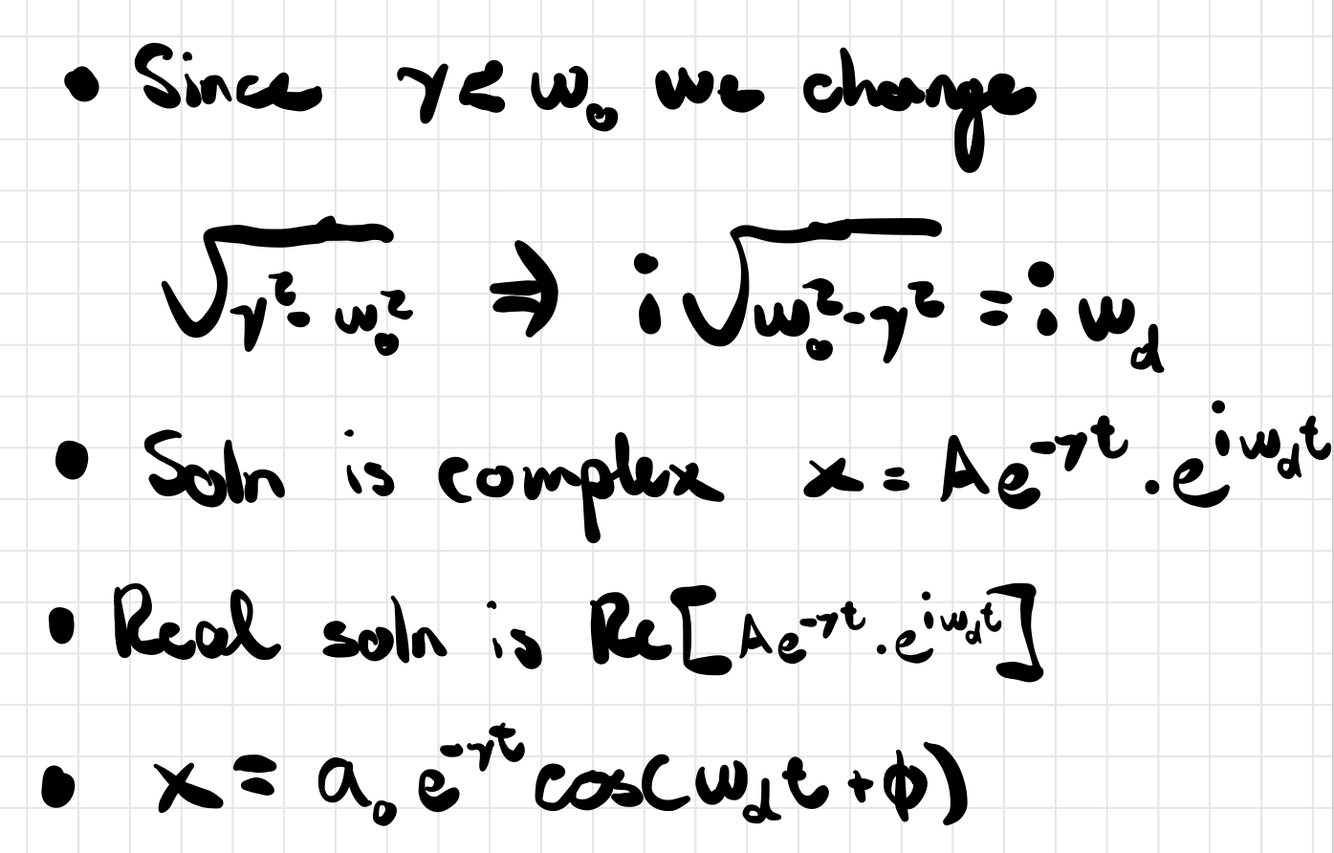 • Since γ < ω₀ we change
√(γ² - ω₀²) ⇒ i√(ω₀² - γ²) = i ω_d
• Soln is complex x = Ae^(-γt) · e^(iω_d t)
• Real soln is Re[Ae^(-γt) · e^(iω_d t)]
• x = a₀ e^(-γt) cos(ω_d t + ϕ)